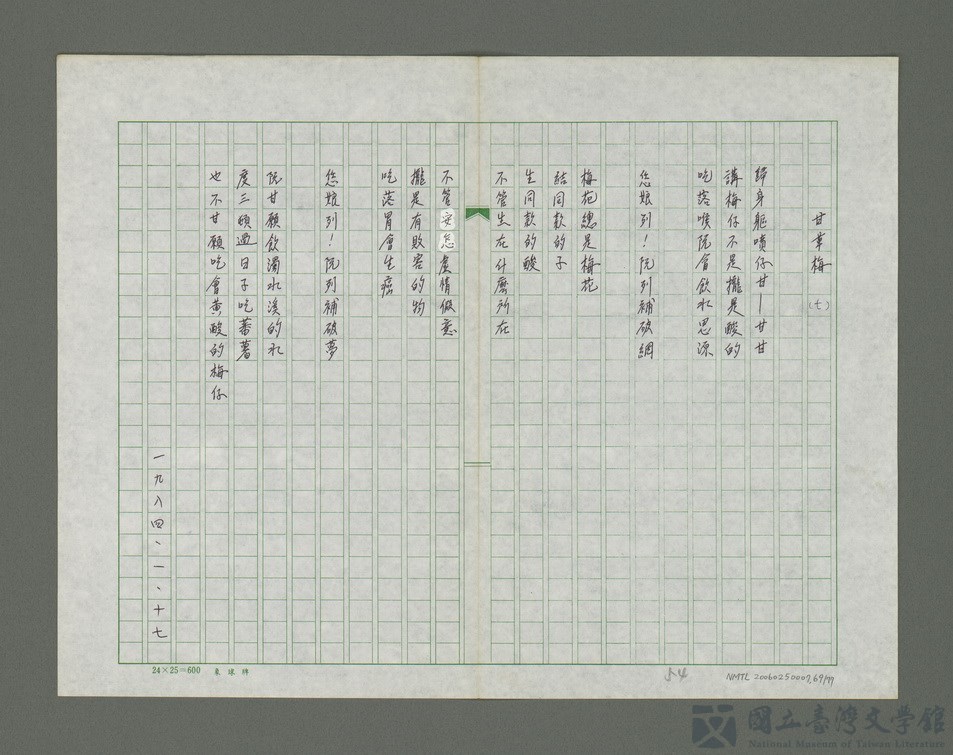 甘草梅
(七)
歸身軀噴仔甘—甘甘
講梅仔不是攏是酸的
吃落喉阮會飲水思源
您娘列!阮列補破網
梅花總是梅花
結同款的子
生同款的酸
不管生在什麼所在
不管安怎虛情假意
攏是有敗害的物
吃落胃會生癌
您娘列!阮列補破夢
阮甘願飲濁水溪的水
度三頓過日子吃蕃薯
也不甘願吃會黃酸的梅仔
一九八四、一、十七
24×25=600
54
NMTL 20060250007,69/99
國立臺灣文學館
National Museum of Taiwan Literature